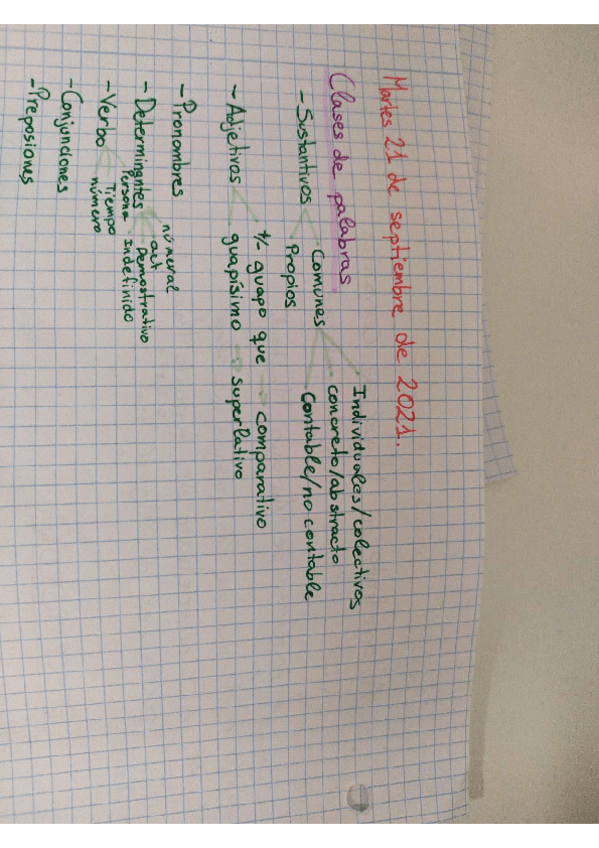 Martes 21 de septiembre de 2021.
Clases de palabras
Individuales/colectivos
- Sustantivos Comunes concreto/abstracto
Propios Contable/no contable
+/- guapo que → comparativo
- Adjetivos guapísimo → superlativo
- Pronombres
numeral
- Determinantes act
Demostrativo
Indefinido
Persona
- Verbo Tiempo
número
- Conjunciones
- Preposiones